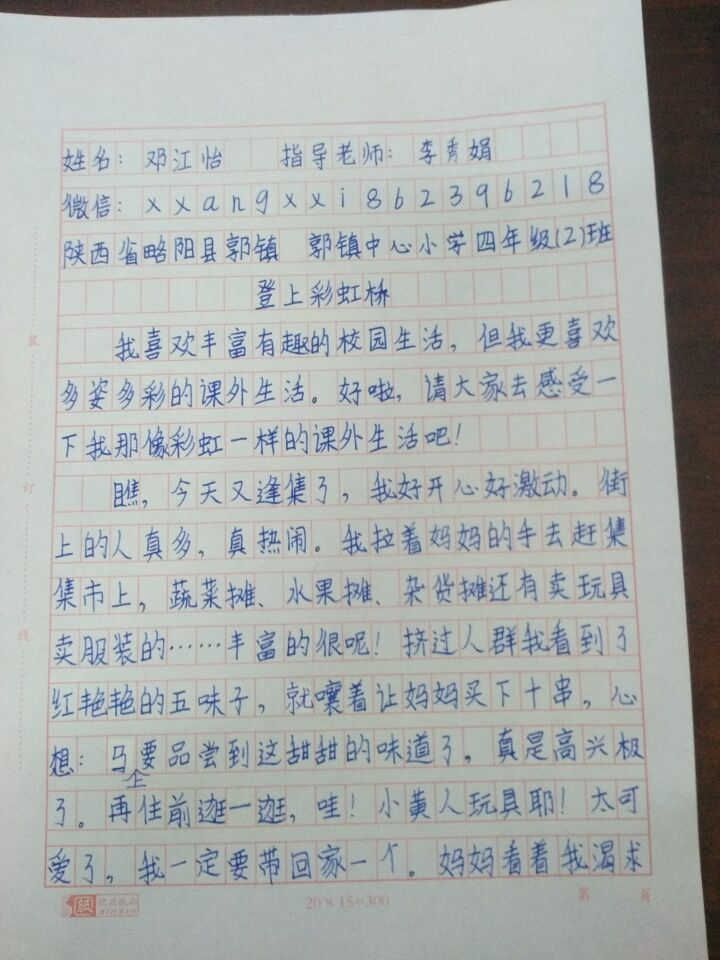 姓名：邓江怡 指导老师：李秀娟
微信：xxangxxi862396218
陕西省略阳县郭镇 郭镇中心小学四年级(2)班
登上彩虹桥
我喜欢丰富有趣的校园生活，但我更喜欢
多姿多彩的课外生活。好啦，请大家去感受一
下我那像彩虹一样的课外生活吧！
瞧，今天又逢集了，我好开心好激动。街
上的人真多，真热闹。我拉着妈妈的手去赶集
集市上，蔬菜摊、水果摊、杂货摊还有卖玩具
卖服装的……丰富的很呢！挤过人群我看到了
红艳艳的五味子，就嚷着让妈妈买下十串，心
想：马上要品尝到这甜甜的味道了，真是高兴极
了。再住前逛一逛，哇！小黄人玩具耶！太可
爱了，我一定要带回家一个。妈妈看着我渴求
装
订
线
xinxin
20×15=300
第 页